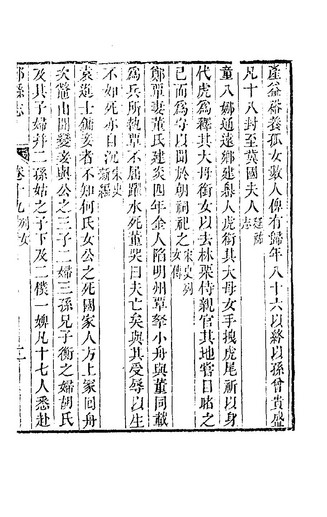 產益裕養孤女數人俾有歸年八十六以終以孫曾貴盛
凡十八封至冀國夫人延祐志
童八娜通遠鄉建嶴人虎銜其大母女手拽虎尾祈以身
代虎為釋其大母銜女以去林栗侍親官其地嘗目睹之
已而為守以聞於朝祠祀之宋史列女傳
鄭覃妻董氏建炎四年金人陷明州覃拏小舟與董同載
為兵所執覃不屈躍水死董哭曰夫亡矣與其受辱以生
不如死亦自沉宋史新編
袁進士鏞妾者不知何氏女公之死國家人方上冢回舟
次鰲山聞變妾與公之三子二婦三孫兄子衡之婦胡氏
及其子婦并二孫姑之子下及二僕一婢凡十七人悉赴
縣志
卷十九列女